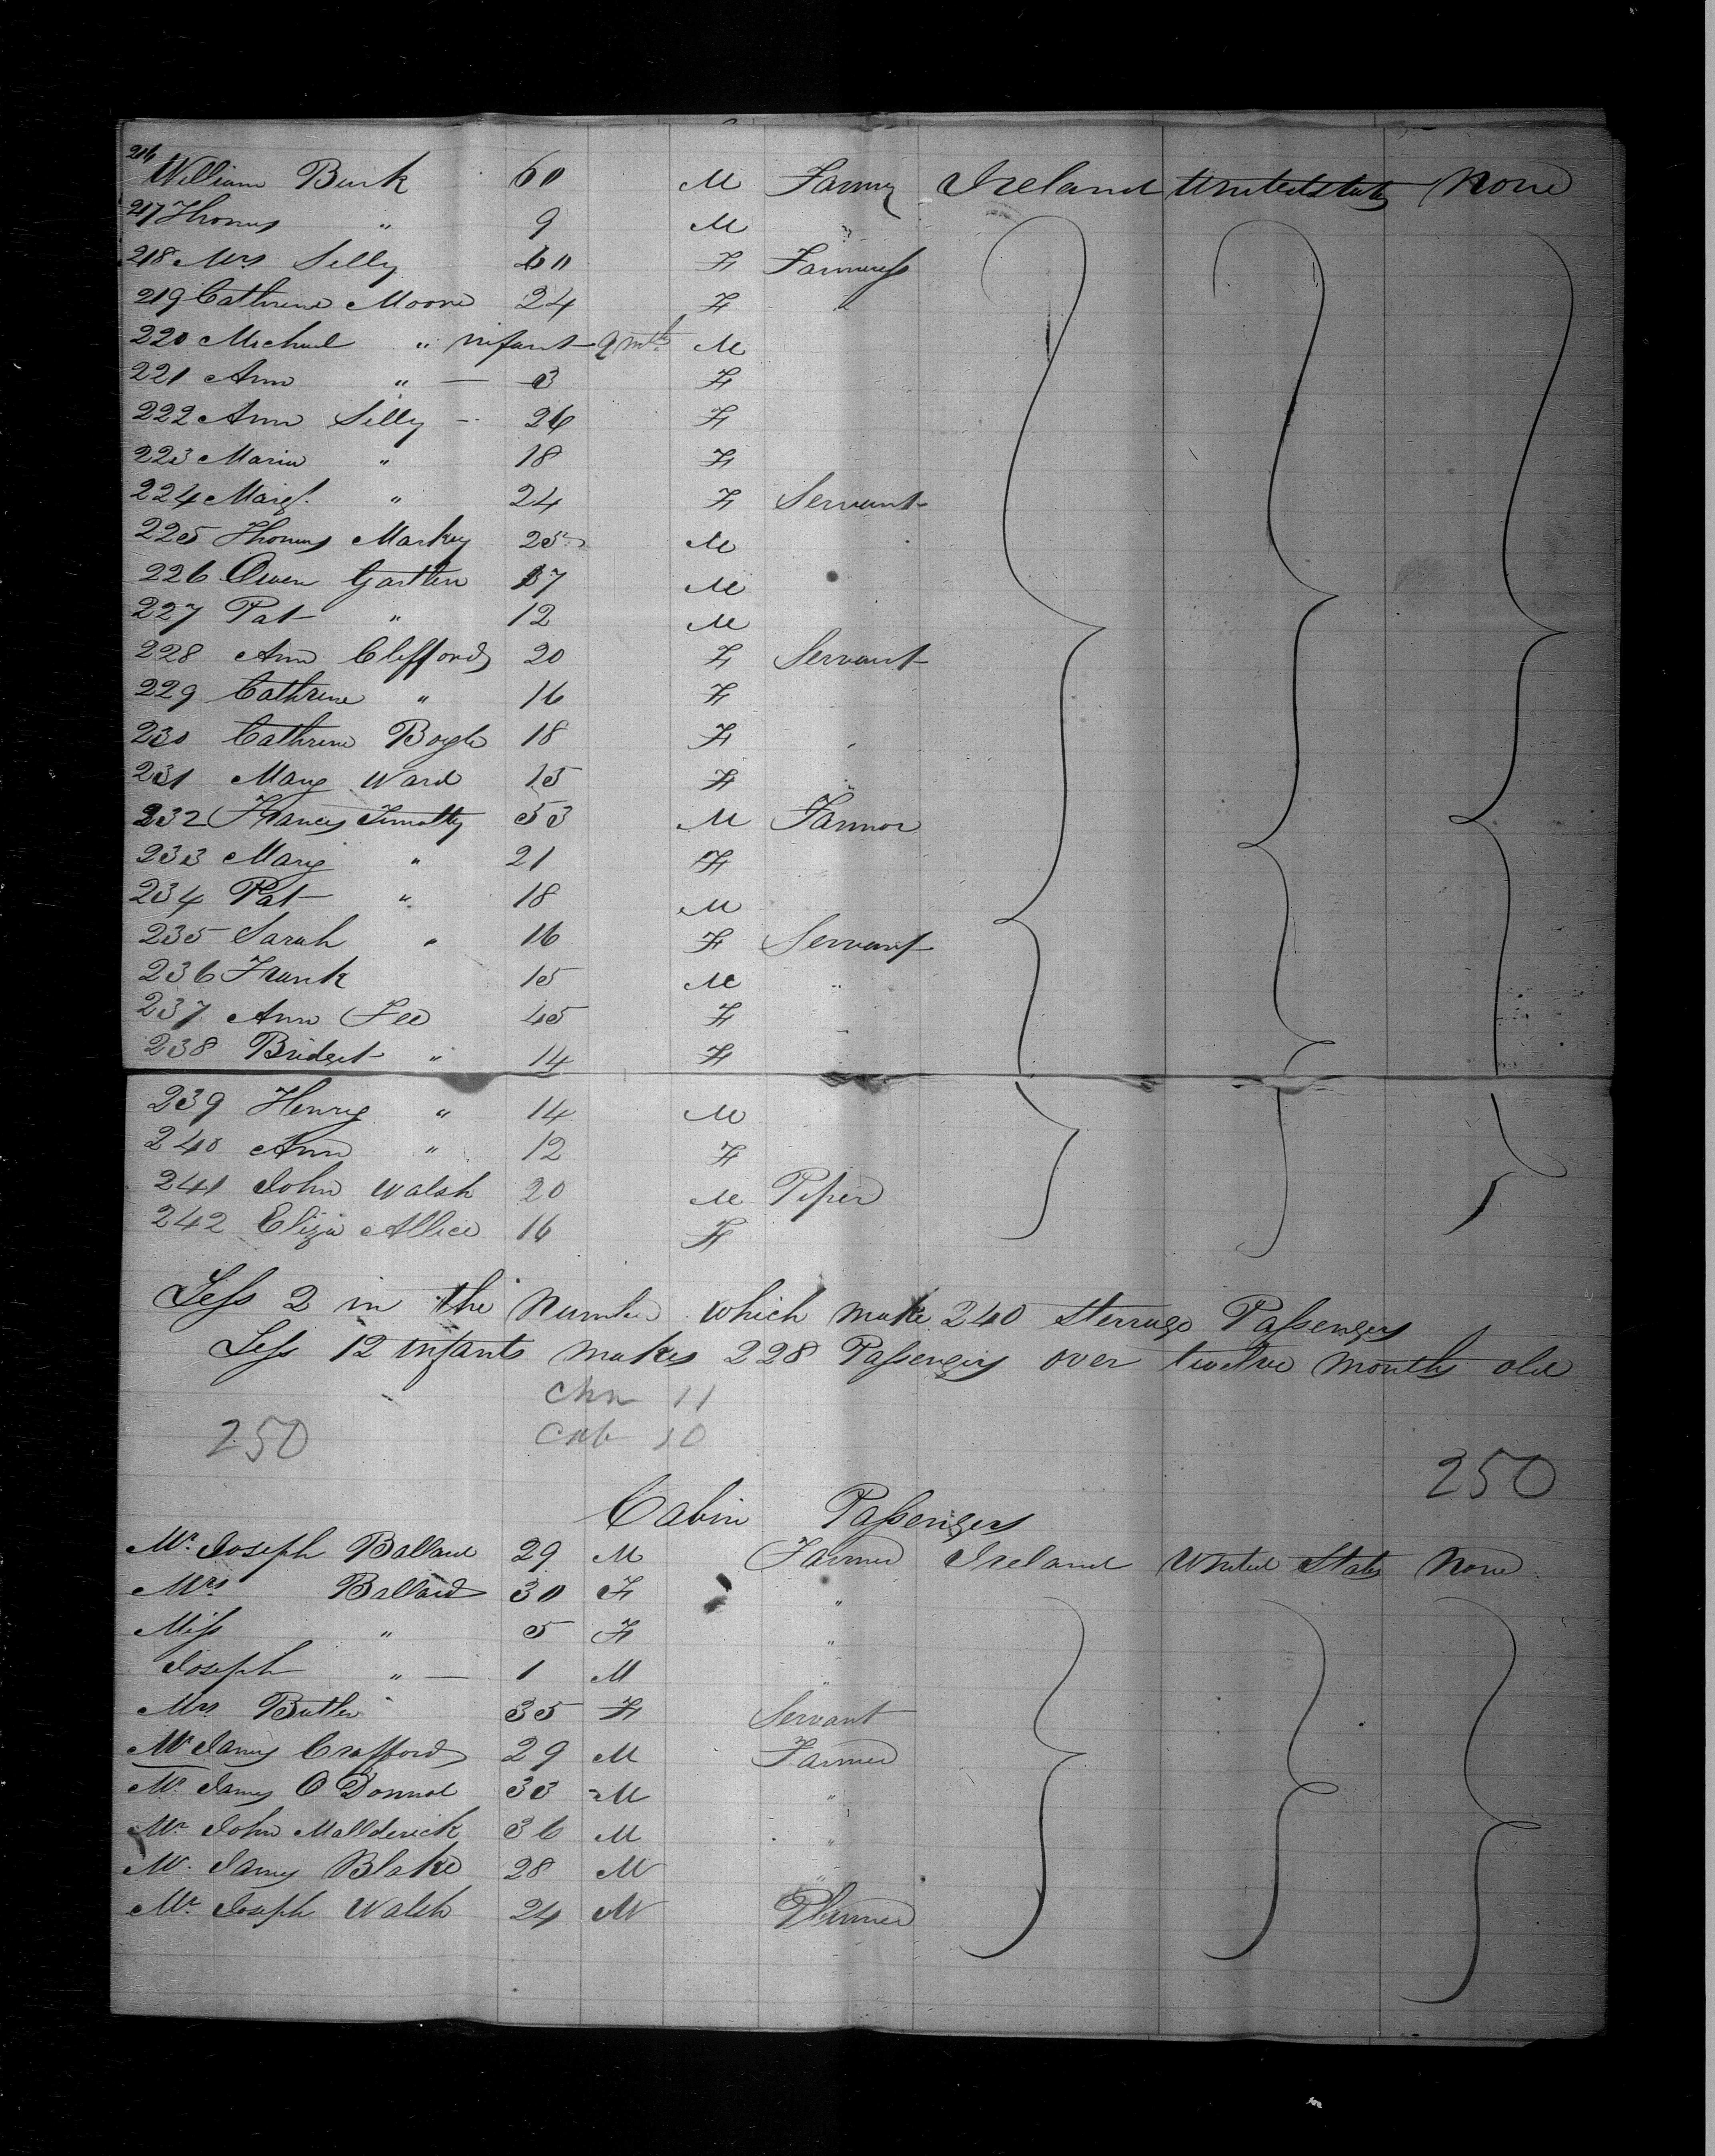 216 William Burk 60 M Farmer Ireland United States None
217 Thomas " 9 M "
218 Mrs Lilly 60 F Farmeress
219 Cathrine Moore 24 F "
220 Michael " infant 9 mth M
221 Ann " — 3 F
222 Ann Lilly - 26 F
223 Maria " 18 F
224 Margt. " 24 F Servant
225 Thomas Markey 25 M
226 Owen 17 M
227 Pat " 12 M
228 Ann Clifford 20 F Servant
229 Cathrine " 16 F
230 Cathrine Boyle 18 F
231 Mary Ward 15 F
232 Francis Timolty 53 M Farmor
233 Mary " 21 F
234 Pat " 18 M
235 Sarah " 16 F Servant
236 Frank 15 M "
237 Ann Fee 45 F
238 Bridget " 14 F
239 Henry " 14 M
240 Ann " 12 F
241 John Walsh 20 M Piper
242 Eliza Allice 16 F
Less 2 in the Number which make 240 sterrage Passengers
Less 12 infants makes 228 Passengers over twelve months old
Chn 11
250 Cab 10
250
Cabin Passengers
Mr. Joseph Ballard 29 M Farmer Ireland United States None
Mrs Ballard 30 F "
Miss " 5 F "
Joseph " — 1 M "
Mrs Butler 35 F Servant
Mr James Crafford 29 M Farmer
Mr. James O Donnol 33 M "
Mr John Mallderick 36 M "
Mr. James Blake 28 M "
Mr Joseph Walsh 24 M